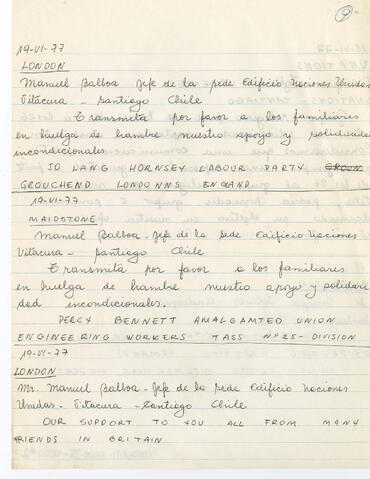 9
19-VI-77
LONDON
Manuel Balboa Jefe de la sede Edificio Naciones Unidas
Vitacura - Santiago Chile
Transmita por favor a los familiares
en huelga de hambre nuestro apoyo y solidaridad
incondicionales.
JO LANG HORNSEY LABOUR PARTY CROUN
GROUCHEND LONDONNS ENGAND
19-VI-77
MAIDSTONE
Manuel Balboa - Jefe de la sede Edificio Naciones
Vitacura - Santiago Chile
Transmita por favor a los familiares
en huelga de hambre nuestro apoyo y solidari
dad incondicionales.
PERCY BENNETT AMALGAMTED UNION
ENGINEERING WORKERS TASS Nº25- DIVISION
19-VI-77
LONDON
Mr. Manuel Balboa - Jefe de la sede Edificio Naciones
Unidas - Vitacura - Santiago Chile
OUR SUPPORT TO YOU ALL FROM MANY
FRIENDS IN BRITAIN